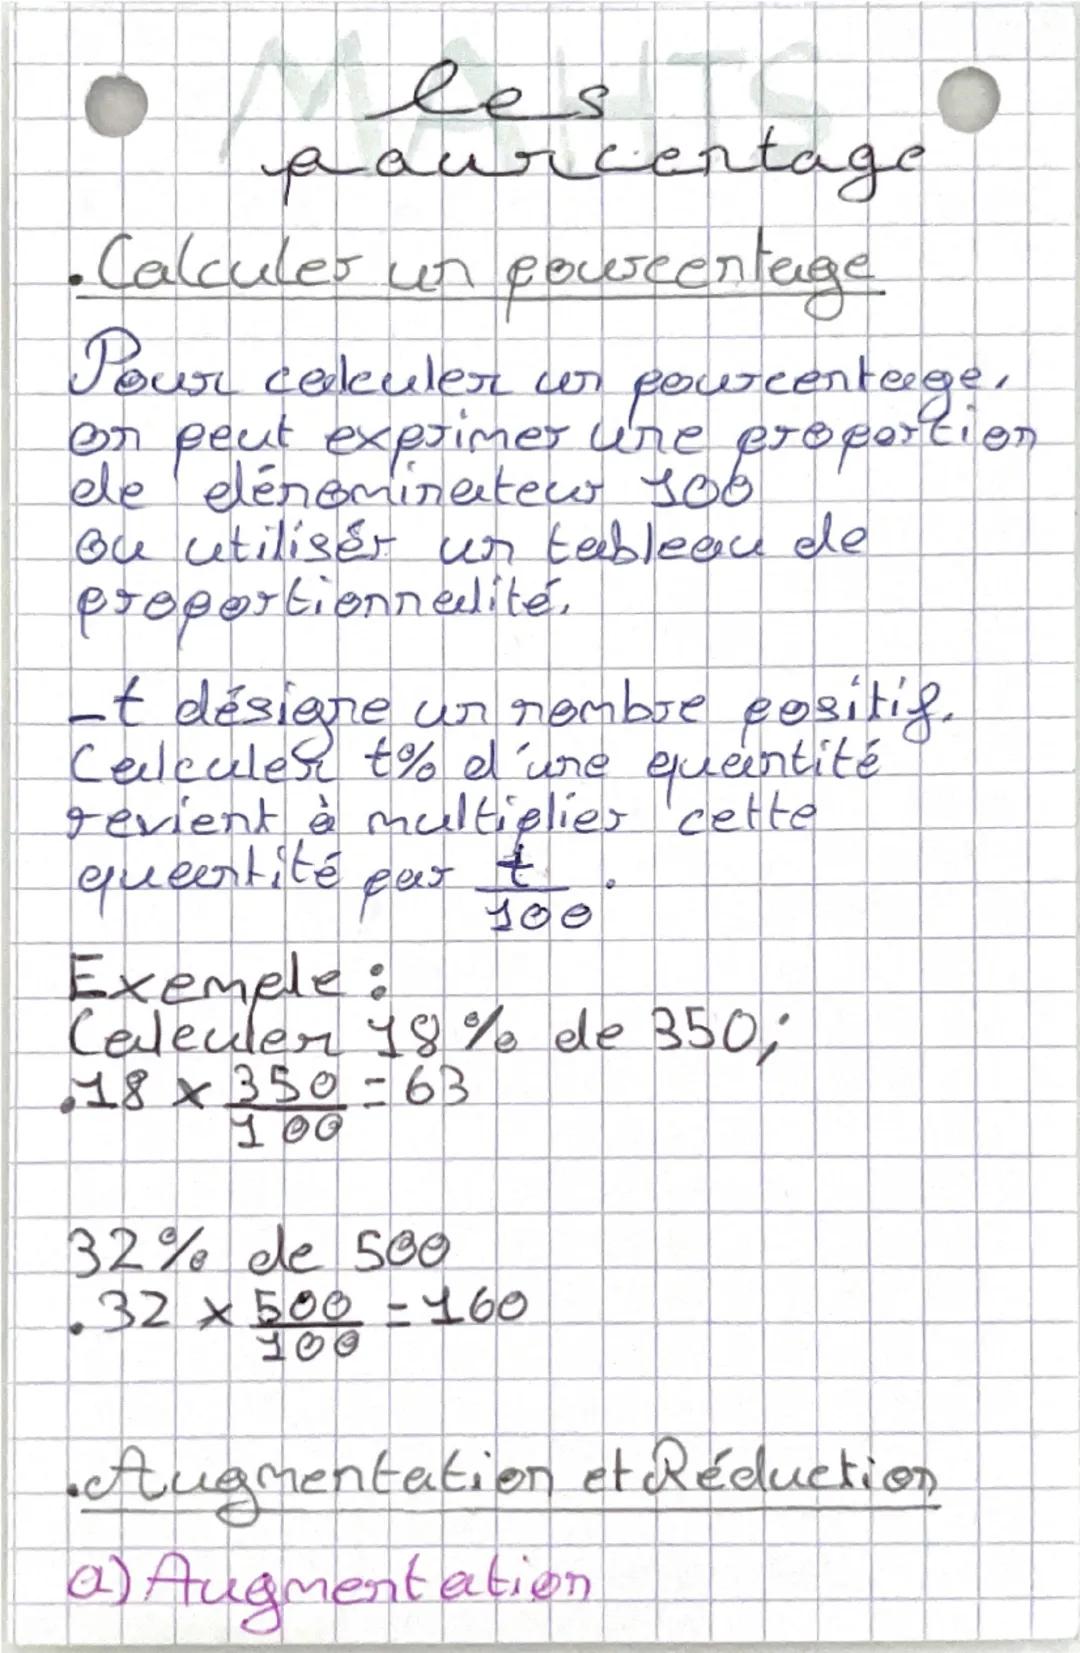 MAHTS
les
pourcentage
. Calculer un pourcentage
Pour calculer un pourcentage,
on peut exprimer une proportion
de dénominateur 100
ou utilisér un tableau de
proportionnalité.
- t désigne un nombre positif.
Calculer t% d'une quantité
revient à multiplier cette
quantité par t/100.
Exemple :
Calculer 18% de 350;
. 18 × 350/100 = 63
32% de 500
. 32 × 500/100 = 160
. Augmentation et Réduction
a) Augmentation